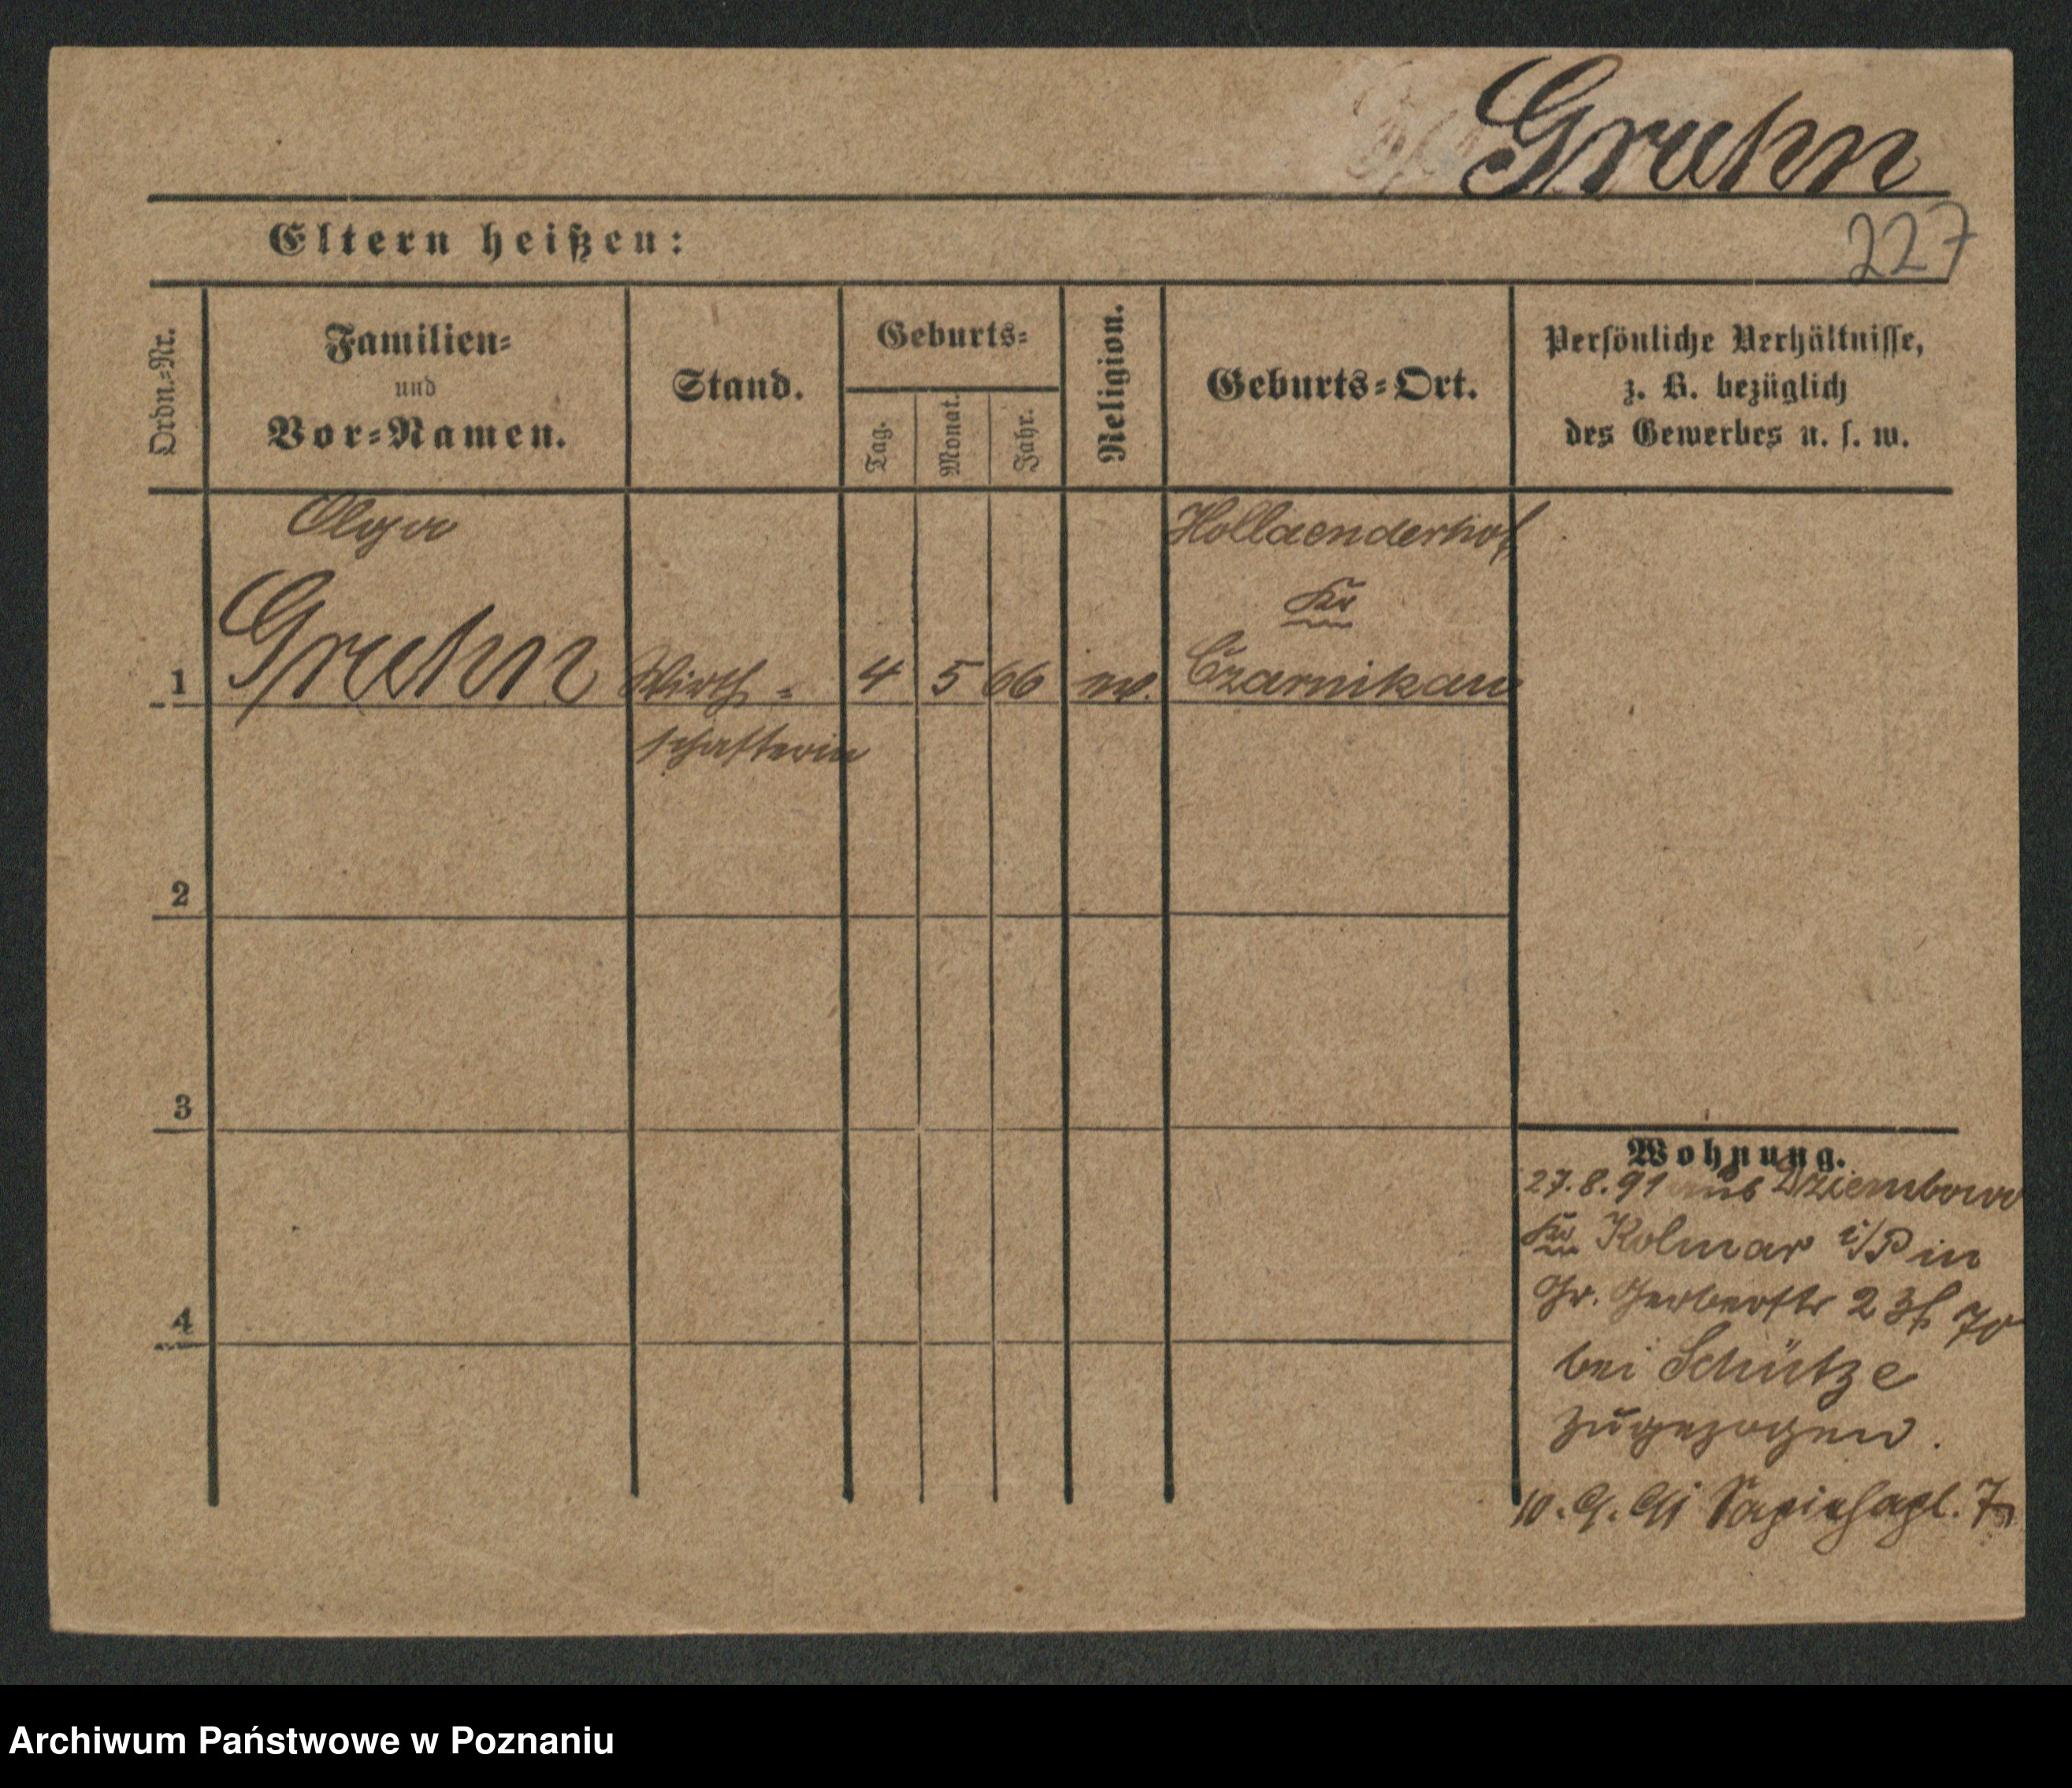 Gruhn
Eltern heißen:
227
Ordn.-Nr.
Familien-
und
Vor-Namen.
Stand.
Geburts-
Tag.
Monat.
Jahr.
Religion.
Geburts-Ort.
Persönliche Verhältnisse,
z. B. bezüglich
des Gewerbes u. s. w.
Olga
Hollaenderhof
Kr
1 Gruhn Wirth- 4 5 66 ev. Czarnikau
schafterin
2
3
4
Wohnung.
27.8.91 aus Dziembowo
Kr Kolmar i/P in
Gr. Gerberstr 2
bei Schütze
zugezogen.
10.9.91 Sapiehapl. 7
Archiwum Państwowe w Poznaniu